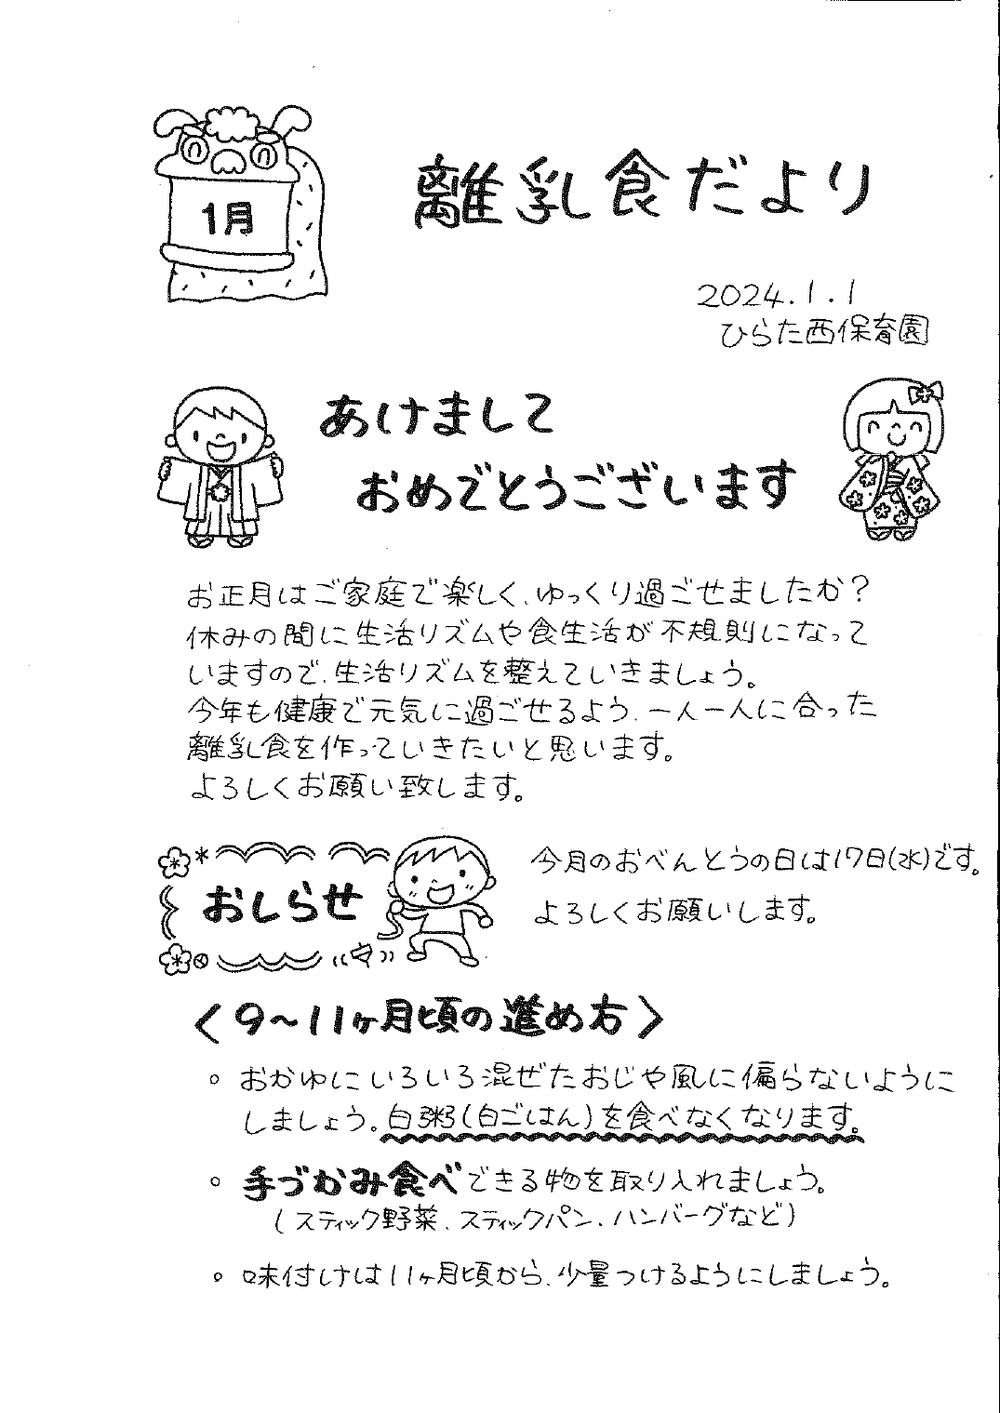 1月
離乳食だより
2024.1.1
ひらた西保育園
あけまして
おめでとうございます
お正月はご家庭で楽しく、ゆっくり過ごせましたか？
休みの間に生活リズムや食生活が不規則になって
いますので、生活リズムを整えていきましょう。
今年も健康で元気に過ごせるよう、一人一人に合った
離乳食を作っていきたいと思います。
よろしくお願い致します。
おしらせ
今月のおべんとうの日は17日(水)です。
よろしくお願いします。
〈9～11ヶ月頃の進め方〉
◦ おかゆにいろいろ混ぜたおじや風に偏らないように
しましょう。白粥(白ごはん)を食べなくなります。
◦ 手づかみ食べできる物を取り入れましょう。
(スティック野菜、スティックパン、ハンバーグなど)
◦ 味付けは11ヶ月頃から、少量つけるようにしましょう。